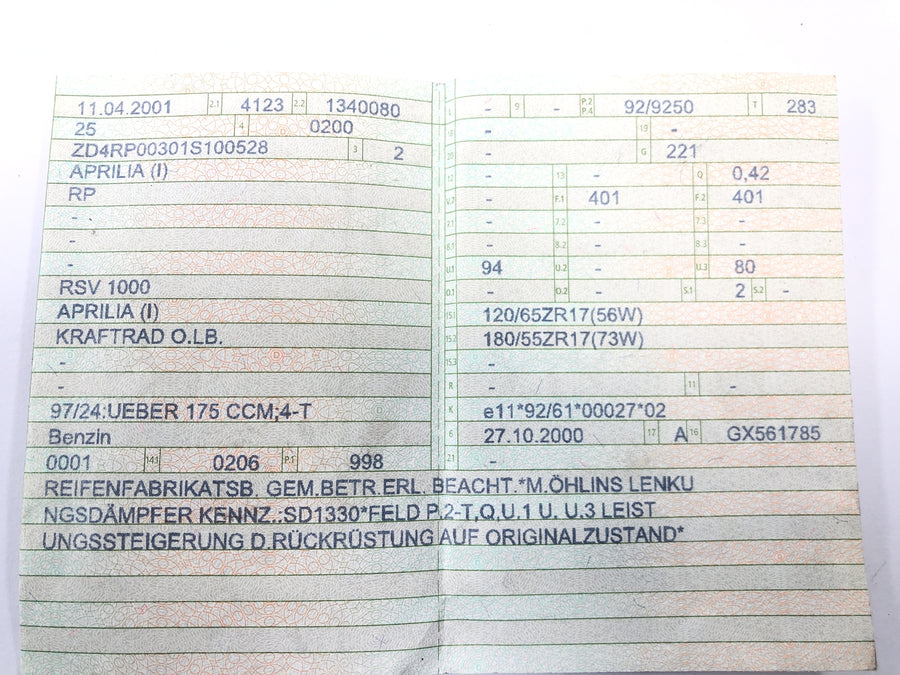 11.04.2001 2.1 4123 2.2 1340080
25 4 0200
ZD4RP00301S100528 3 2
APRILIA (I)
RP
-
-
-
RSV 1000
APRILIA (I)
KRAFTRAD O.LB.
-
-
97/24:UEBER 175 CCM;4-T
Benzin
0001 14.1 0206 P.1 998
- 9 - P.2 P.4 92/9250 T 283
18 - 19 -
20 - G 221
12 - 13 - Q 0,42
V.7 - F.1 401 F.2 401
7.1 - 7.2 - 7.3 -
8.1 - 8.2 - 8.3 -
U.1 94 U.2 - U.3 80
O.1 - O.2 - S.1 2 S.2 -
15.1 120/65ZR17(56W)
15.2 180/55ZR17(73W)
15.3 -
R - 11 -
K e11*92/61*00027*02
6 27.10.2000 17 A 16 GX561785
21 -
REIFENFABRIKATSB. GEM.BETR.ERL. BEACHT.*M.ÖHLINS LENKU
NGSDÄMPFER KENNZ.:SD1330*FELD P.2-T,Q,U.1 U. U.3 LEIST
UNGSSTEIGERUNG D.RÜCKRÜSTUNG AUF ORIGINALZUSTAND*